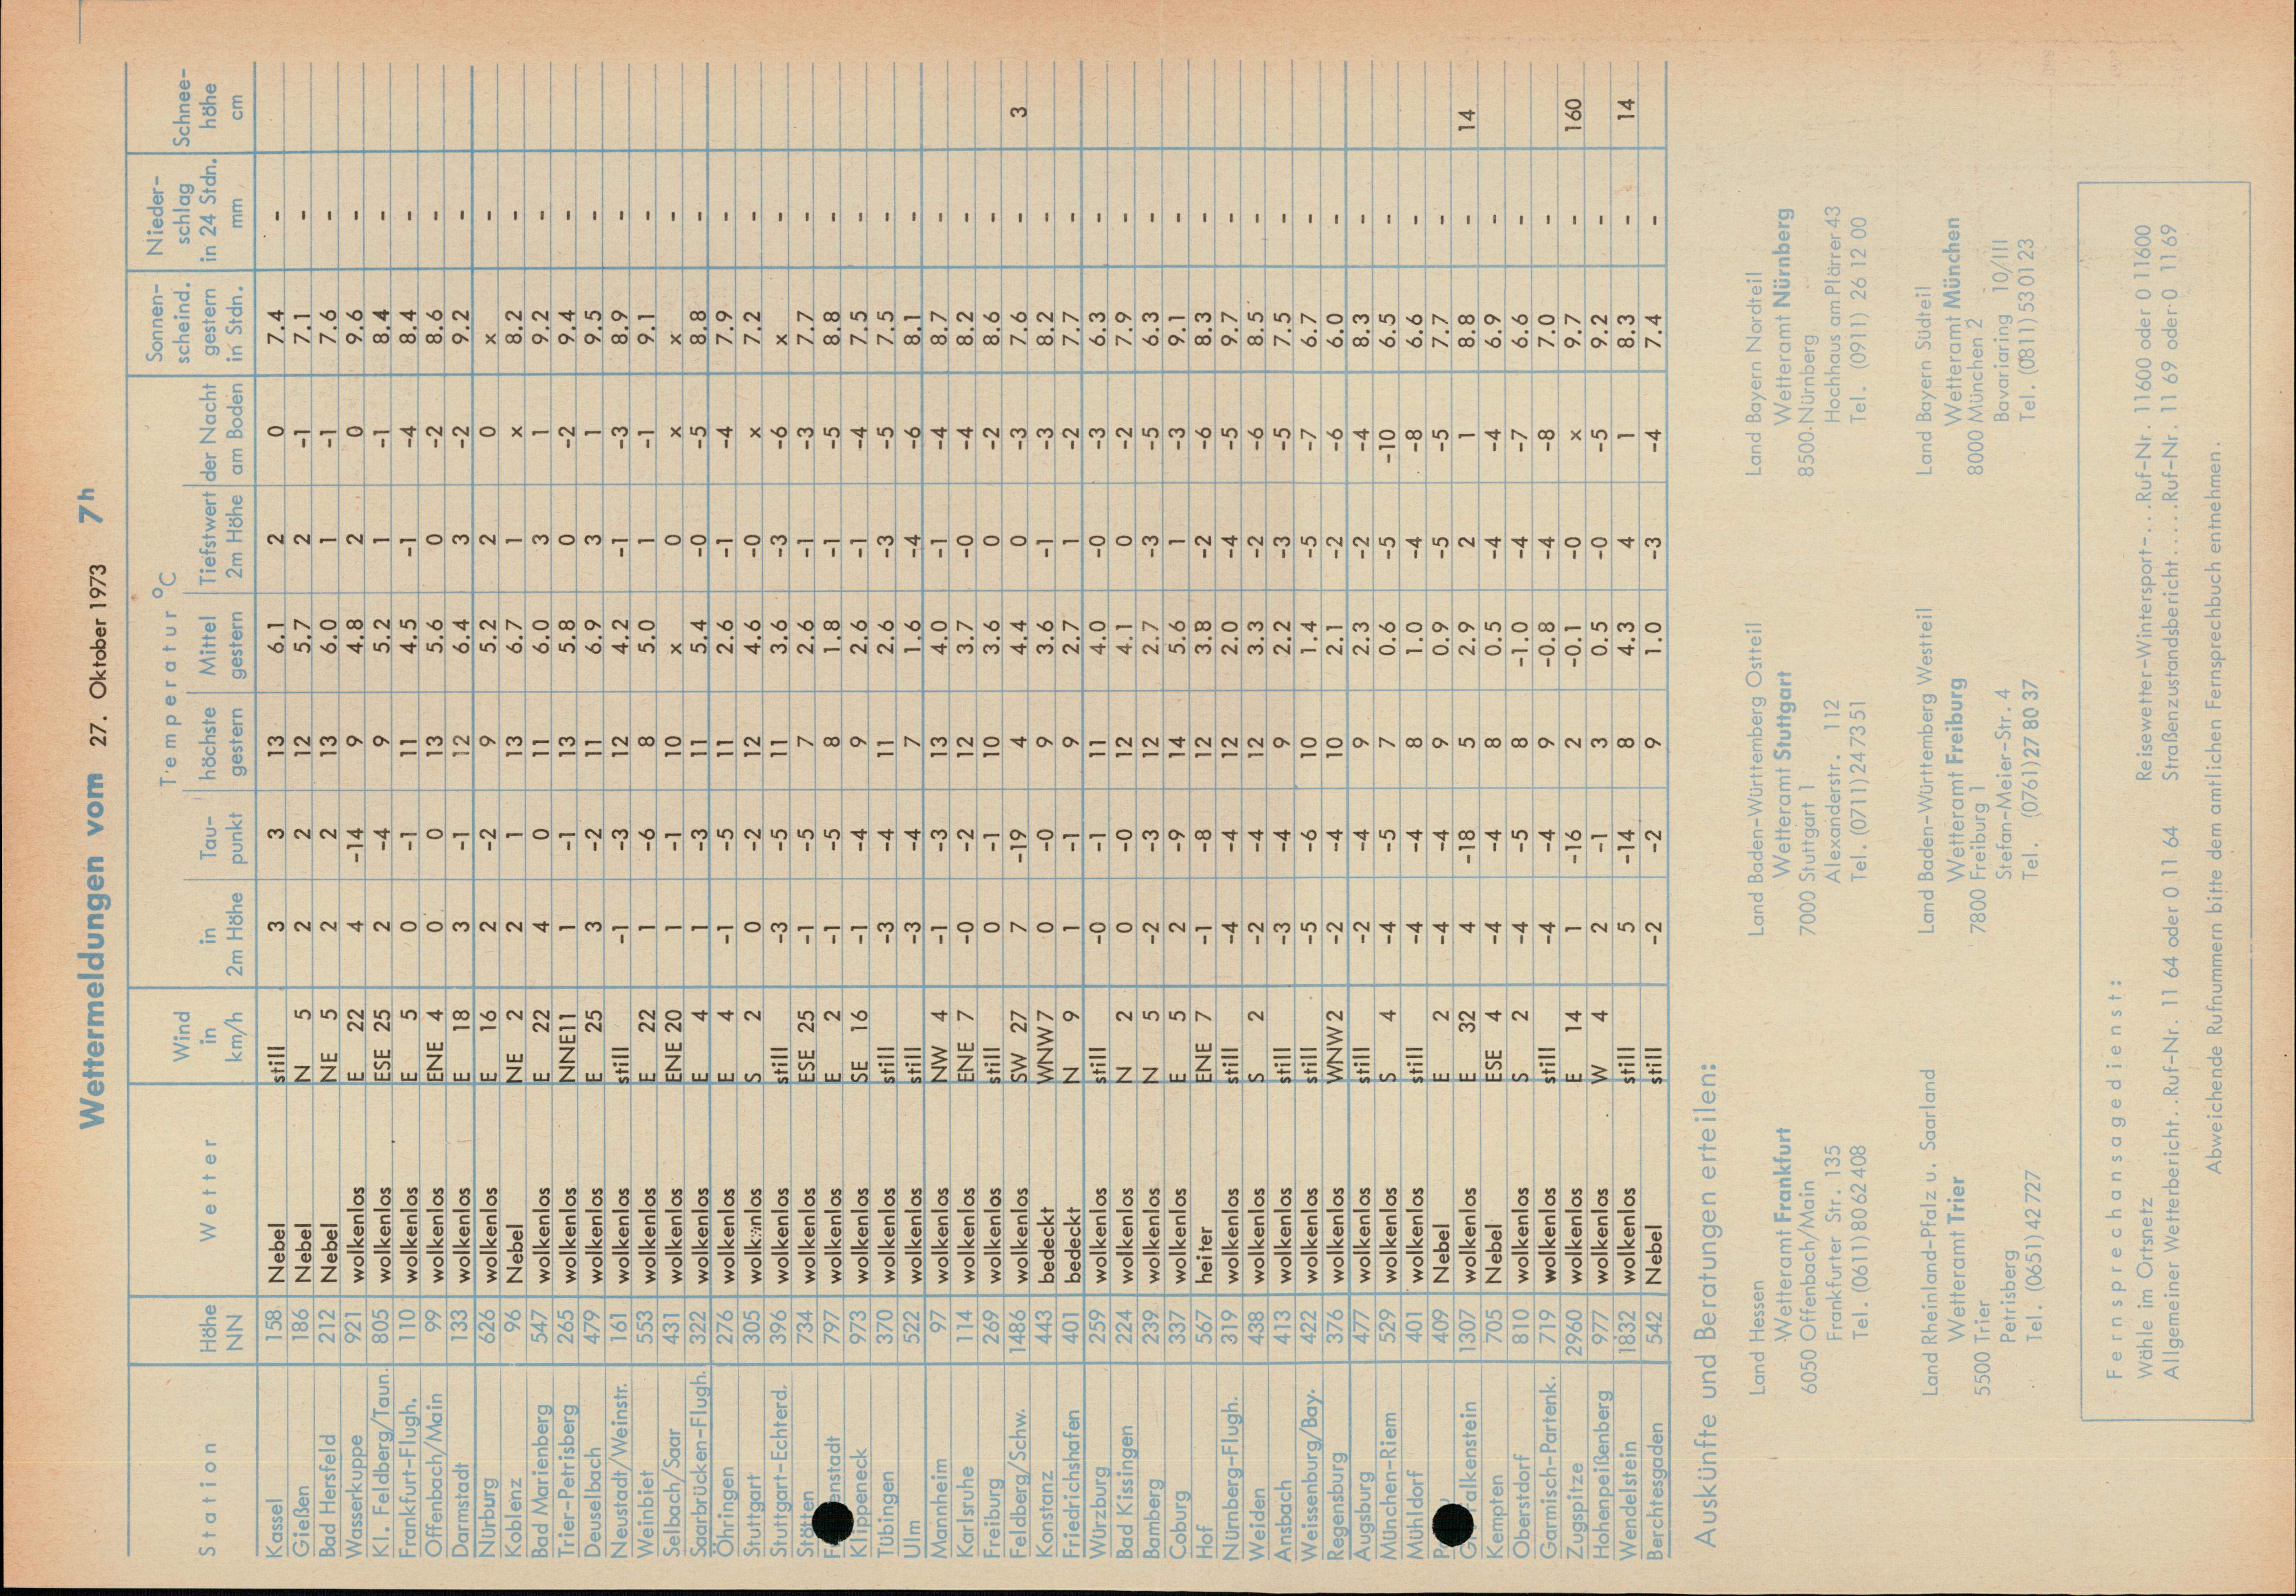 Wettermeldungen vom 27. Oktober 1973 7h
Station Höhe NN Wetter Wind in km/h Temperatur °C in 2m Höhe Tau- punkt höchste gestern Mittel gestern Tiefstwert der Nacht 2m Höhe am Boden Sonnen- scheind. gestern in Stdn. Nieder- schlag in 24 Stdn. mm Schnee- höhe cm
Kassel 158 Nebel still 3 3 13 6.1 2 0 7.4 -
Gießen 186 Nebel N 5 2 2 12 5.7 2 -1 7.1 -
Bad Hersfeld 212 Nebel NE 5 2 2 13 6.0 1 -1 7.6 -
Wasserkuppe 921 wolkenlos E 22 4 -14 9 4.8 2 0 9.6 -
Kl. Feldberg/Taun. 805 wolkenlos ESE 25 2 -4 9 5.2 1 -1 8.4 -
Frankfurt-Flugh. 110 wolkenlos E 5 0 -1 11 4.5 -1 -4 8.4 -
Offenbach/Main 99 wolkenlos ENE 4 0 0 13 5.6 0 -2 8.6 -
Darmstadt 133 wolkenlos E 18 3 -1 12 6.4 3 -2 9.2 -
Nürburg 626 wolkenlos E 16 2 -2 9 5.2 2 0 x -
Koblenz 96 Nebel NE 2 2 1 13 6.7 1 x 8.2 -
Bad Marienberg 547 wolkenlos E 22 4 0 11 6.0 3 1 9.2 -
Trier-Petrisberg 265 wolkenlos NNE11 1 -1 13 5.8 0 -2 9.4 -
Deuselbach 479 wolkenlos E 25 3 -2 11 6.9 3 1 9.5 -
Neustadt/Weinstr. 161 wolkenlos still -1 -3 12 4.2 -1 -3 8.9 -
Weinbiet 553 wolkenlos E 22 1 -6 8 5.0 1 -1 9.1 -
Selbach/Saar 431 wolkenlos ENE 20 1 -1 10 x 0 x x -
Saarbrücken-Flugh. 322 wolkenlos E 4 1 -3 11 5.4 -0 -5 8.8 -
Öhringen 276 wolkenlos E 4 -1 -5 11 2.6 -1 -4 7.9 -
Stuttgart 305 wolkenlos S 2 0 -2 12 4.6 -0 x 7.2 -
Stuttgart-Echterd. 396 wolkenlos still -3 -5 11 3.6 -3 -6 x -
Stötten 734 wolkenlos ESE 25 -1 -5 7 2.6 -1 -3 7.7 -
enstadt 797 wolkenlos E 2 -1 -5 8 1.8 -1 -5 8.8 -
Klippeneck 973 wolkenlos SE 16 -1 -4 9 2.6 -1 -4 7.5 -
Tübingen 370 wolkenlos still -3 -4 11 2.6 -3 -5 7.5 -
Ulm 522 wolkenlos still -3 -4 7 1.6 -4 -6 8.1 -
Mannheim 97 wolkenlos NW 4 -1 -3 13 4.0 -1 -4 8.7 -
Karlsruhe 114 wolkenlos ENE 7 -0 -2 12 3.7 -0 -4 8.2 -
Freiburg 269 wolkenlos still 0 -1 10 3.6 0 -2 8.6 -
Feldberg/Schw. 1486 wolkenlos SW 27 7 -19 4 4.4 0 -3 7.6 - 3
Konstanz 443 bedeckt WNW 7 0 -0 9 3.6 -1 -3 8.2 -
Friedrichshafen 401 bedeckt N 9 1 -1 9 2.7 1 -2 7.7 -
Würzburg 259 wolkenlos still -0 -1 11 4.0 -0 -3 6.3 -
Bad Kissingen 224 wolkenlos N 2 0 -0 12 4.1 0 -2 7.9 -
Bamberg 239 wolkenlos N 5 -2 -3 12 2.7 -3 -5 6.3 -
Coburg 337 wolkenlos E 5 2 -9 14 5.6 1 -3 9.1 -
Hof 567 heiter ENE 7 -1 -8 12 3.8 -2 -6 8.3 -
Nürnberg-Flugh. 319 wolkenlos still -4 -4 12 2.0 -4 -5 9.7 -
Weiden 438 wolkenlos S 2 -2 -4 12 3.3 -2 -6 8.5 -
Ansbach 413 wolkenlos still -3 -4 9 2.2 -3 -5 7.5 -
Weissenburg/Bay. 422 wolkenlos still -5 -6 10 1.4 -5 -7 6.7 -
Regensburg 376 wolkenlos WNW 2 -2 -4 10 2.1 -2 -6 6.0 -
Augsburg 477 wolkenlos still -2 -4 9 2.3 -2 -4 8.3 -
München-Riem 529 wolkenlos S 4 -4 -5 7 0.6 -5 -10 6.5 -
Mühldorf 401 wolkenlos still -4 -4 8 1.0 -4 -8 6.6 -
409 Nebel E 2 -4 -4 9 0.9 -5 -5 7.7 -
alkenstein 1307 wolkenlos E 32 4 -18 5 2.9 2 1 8.8 - 14
Kempten 705 Nebel ESE 4 -4 -4 8 0.5 -4 -4 6.9 -
Oberstdorf 810 wolkenlos S 2 -4 -5 8 -1.0 -4 -7 6.6 -
Garmisch-Partenk. 719 wolkenlos still -4 -4 9 -0.8 -4 -8 7.0 -
Zugspitze 2960 wolkenlos E 14 1 -16 2 -0.1 -0 x 9.7 - 160
Hohenpeißenberg 977 wolkenlos W 4 2 -1 3 0.5 -0 -5 9.2 -
Wendelstein 1832 wolkenlos still 5 -14 8 4.3 4 1 8.3 - 14
Berchtesgaden 542 Nebel still -2 -2 9 1.0 -3 -4 7.4 -
Auskünfte und Beratungen erteilen:
Land Hessen
Wetteramt Frankfurt
6050 Offenbach/Main
Frankfurter Str. 135
Tel. (0611) 80 62 408
Land Baden-Württemberg Ostteil
Wetteramt Stuttgart
7000 Stuttgart 1
Alexanderstr. 112
Tel. (0711) 24 73 51
Land Bayern Nordteil
Wetteramt Nürnberg
8500 Nürnberg
Hochhaus am Plärrer 43
Tel. (0911) 26 12 00
Land Rheinland-Pfalz u. Saarland
Wetteramt Trier
5500 Trier
Petrisberg
Tel. (0651) 42 727
Land Baden-Württemberg Westteil
Wetteramt Freiburg
7800 Freiburg 1
Stefan-Meier-Str. 4
Tel. (0761) 27 80 37
Land Bayern Südteil
Wetteramt München
8000 München 2
Bavariaring 10/III
Tel. (0811) 53 01 23
Fernsprechansagedienst:
Wähle im Ortsnetz Reisewetter-Wintersport-...Ruf-Nr. 11600 oder 0 11600
Allgemeiner Wetterbericht..Ruf-Nr. 11 64 oder 0 11 64 Straßenzustandsbericht.....Ruf-Nr. 11 69 oder 0 11 69
Abweichende Rufnummern bitte dem amtlichen Fernsprechbuch entnehmen.